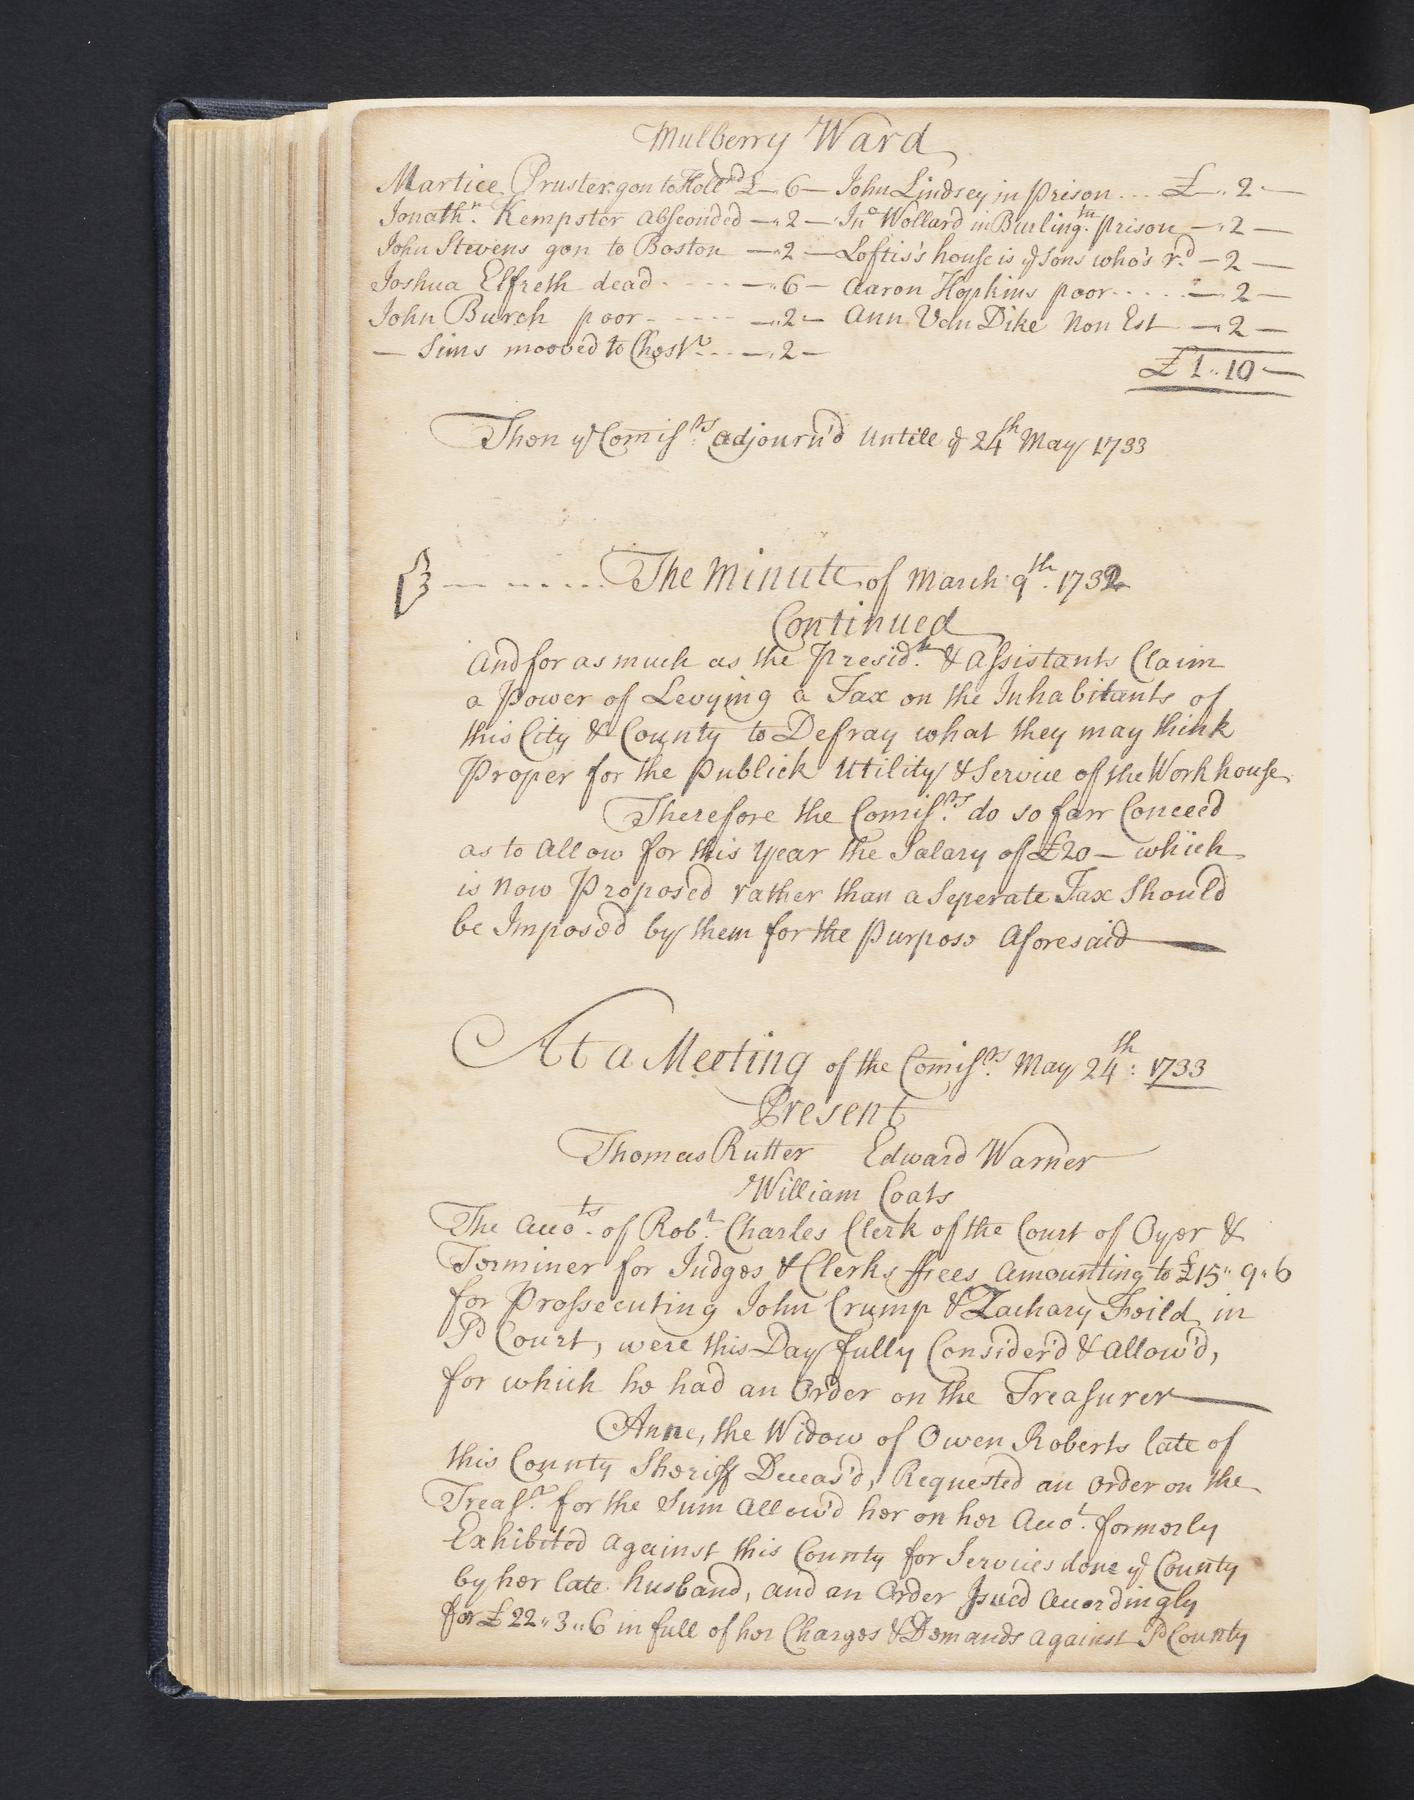 Mulberry Ward
Martice Pruster gon to Holl.d £ - 6 - John Lindsey in prison ... £ .. 2 -
Jonath.n Kempster absconded - " 2 - Jn.o Wollard in Burling.tn prison - " 2 -
John Stevens gon to Boston - " 2 - Loftis's house is ye Sons who's r.d - 2 -
Joshua Elfreth dead ---- - " 6 - Aaron Hopkins poor ..... - 2 -
John Burch poor ----- - " 2 - Ann Van Dike Non Est - " 2 -
- Sims mooved to Chest.r ... - " 2 -
£ 1 .. 10 -
Then ye Comiss.rs adjourn'd untill ye 24th May 1733
--- ..... The Minute of March 9th. 1732
Continued
And for as much as the Presid.t & Assistants Claim
a Power of Levying a Tax on the Inhabitants of
this City & County to Defray what they may think
Proper for the Publick Utility & Service of the Workhouse
Therefore the Comiss.rs do so farr Conceed
as to Allow for this Year the Salary of £20 - which
is now Proposed rather than a Seperate Tax Should
be Imposed by them for the Purpose Aforesaid
At a Meeting of the Comiss.rs May 24th: 1733
Present
Thomas Rutter Edward Warner
William Coats
The Acco.ts of Rob.t Charles Clerk of the Court of Oyer &
Terminer for Judges & Clerks ffees amounting to £15 " 9 " 6
for Prossecuting John Crump & Zachary Feild in
sd Court, were this Day fully Consider'd & allow'd,
for which he had an Order on the Treasurer
Anne, the Widow of Owen Roberts late of
this County Sheriff Deceas'd, Requested an order on the
Treas.r for the Sum allow'd her on her Acco.t formerly
Exhibited against this County for Services done ye County
by her late husband, and an Order Issued Accordingly
for £22 " 3 " 6 in full of her Charges & Demands against sd County